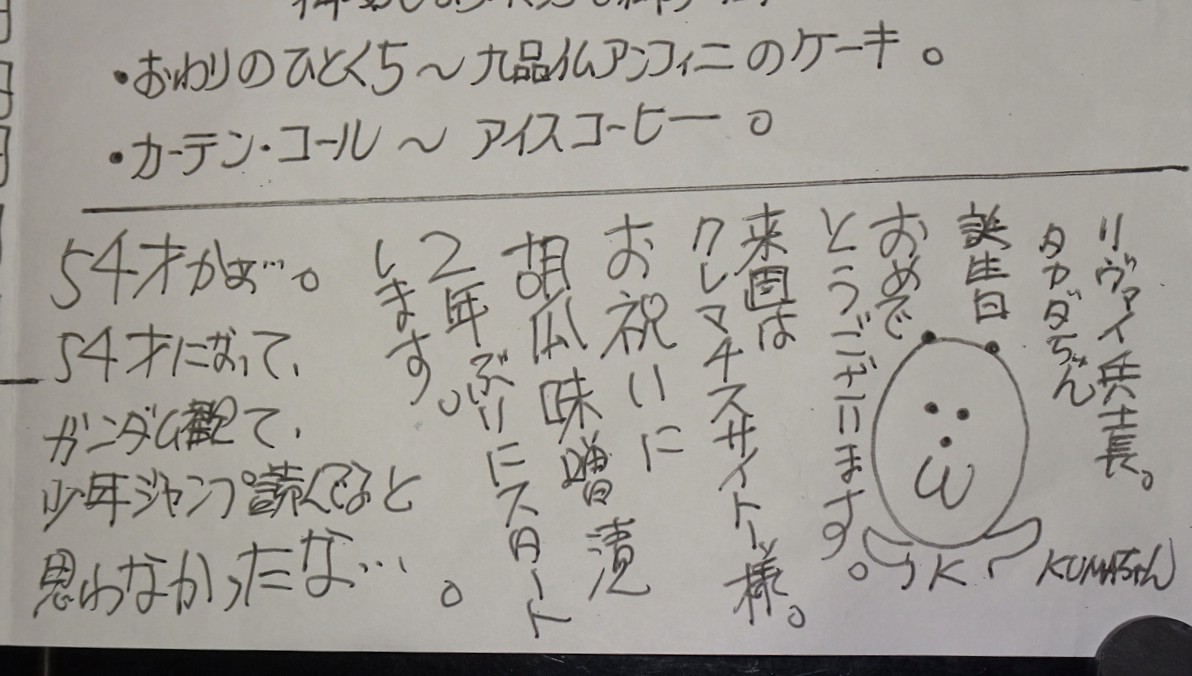 ・おわりのひとくち～九品仏アンフィニのケーキ。
・カーテン・コール～アイスコーヒー。
リヴァイ兵士長。
タカダちゃん
誕生日
おめで
とうございます。
来週は
クレマチスサイトー様。
お祝いに
胡瓜味噌漬
2年ぶりにスタート
します。
KUMAちゃん
K
54才かぁ…。
54才になって、
ガンダム観て、
少年ジャンプ読んでると
思わなかったな…。